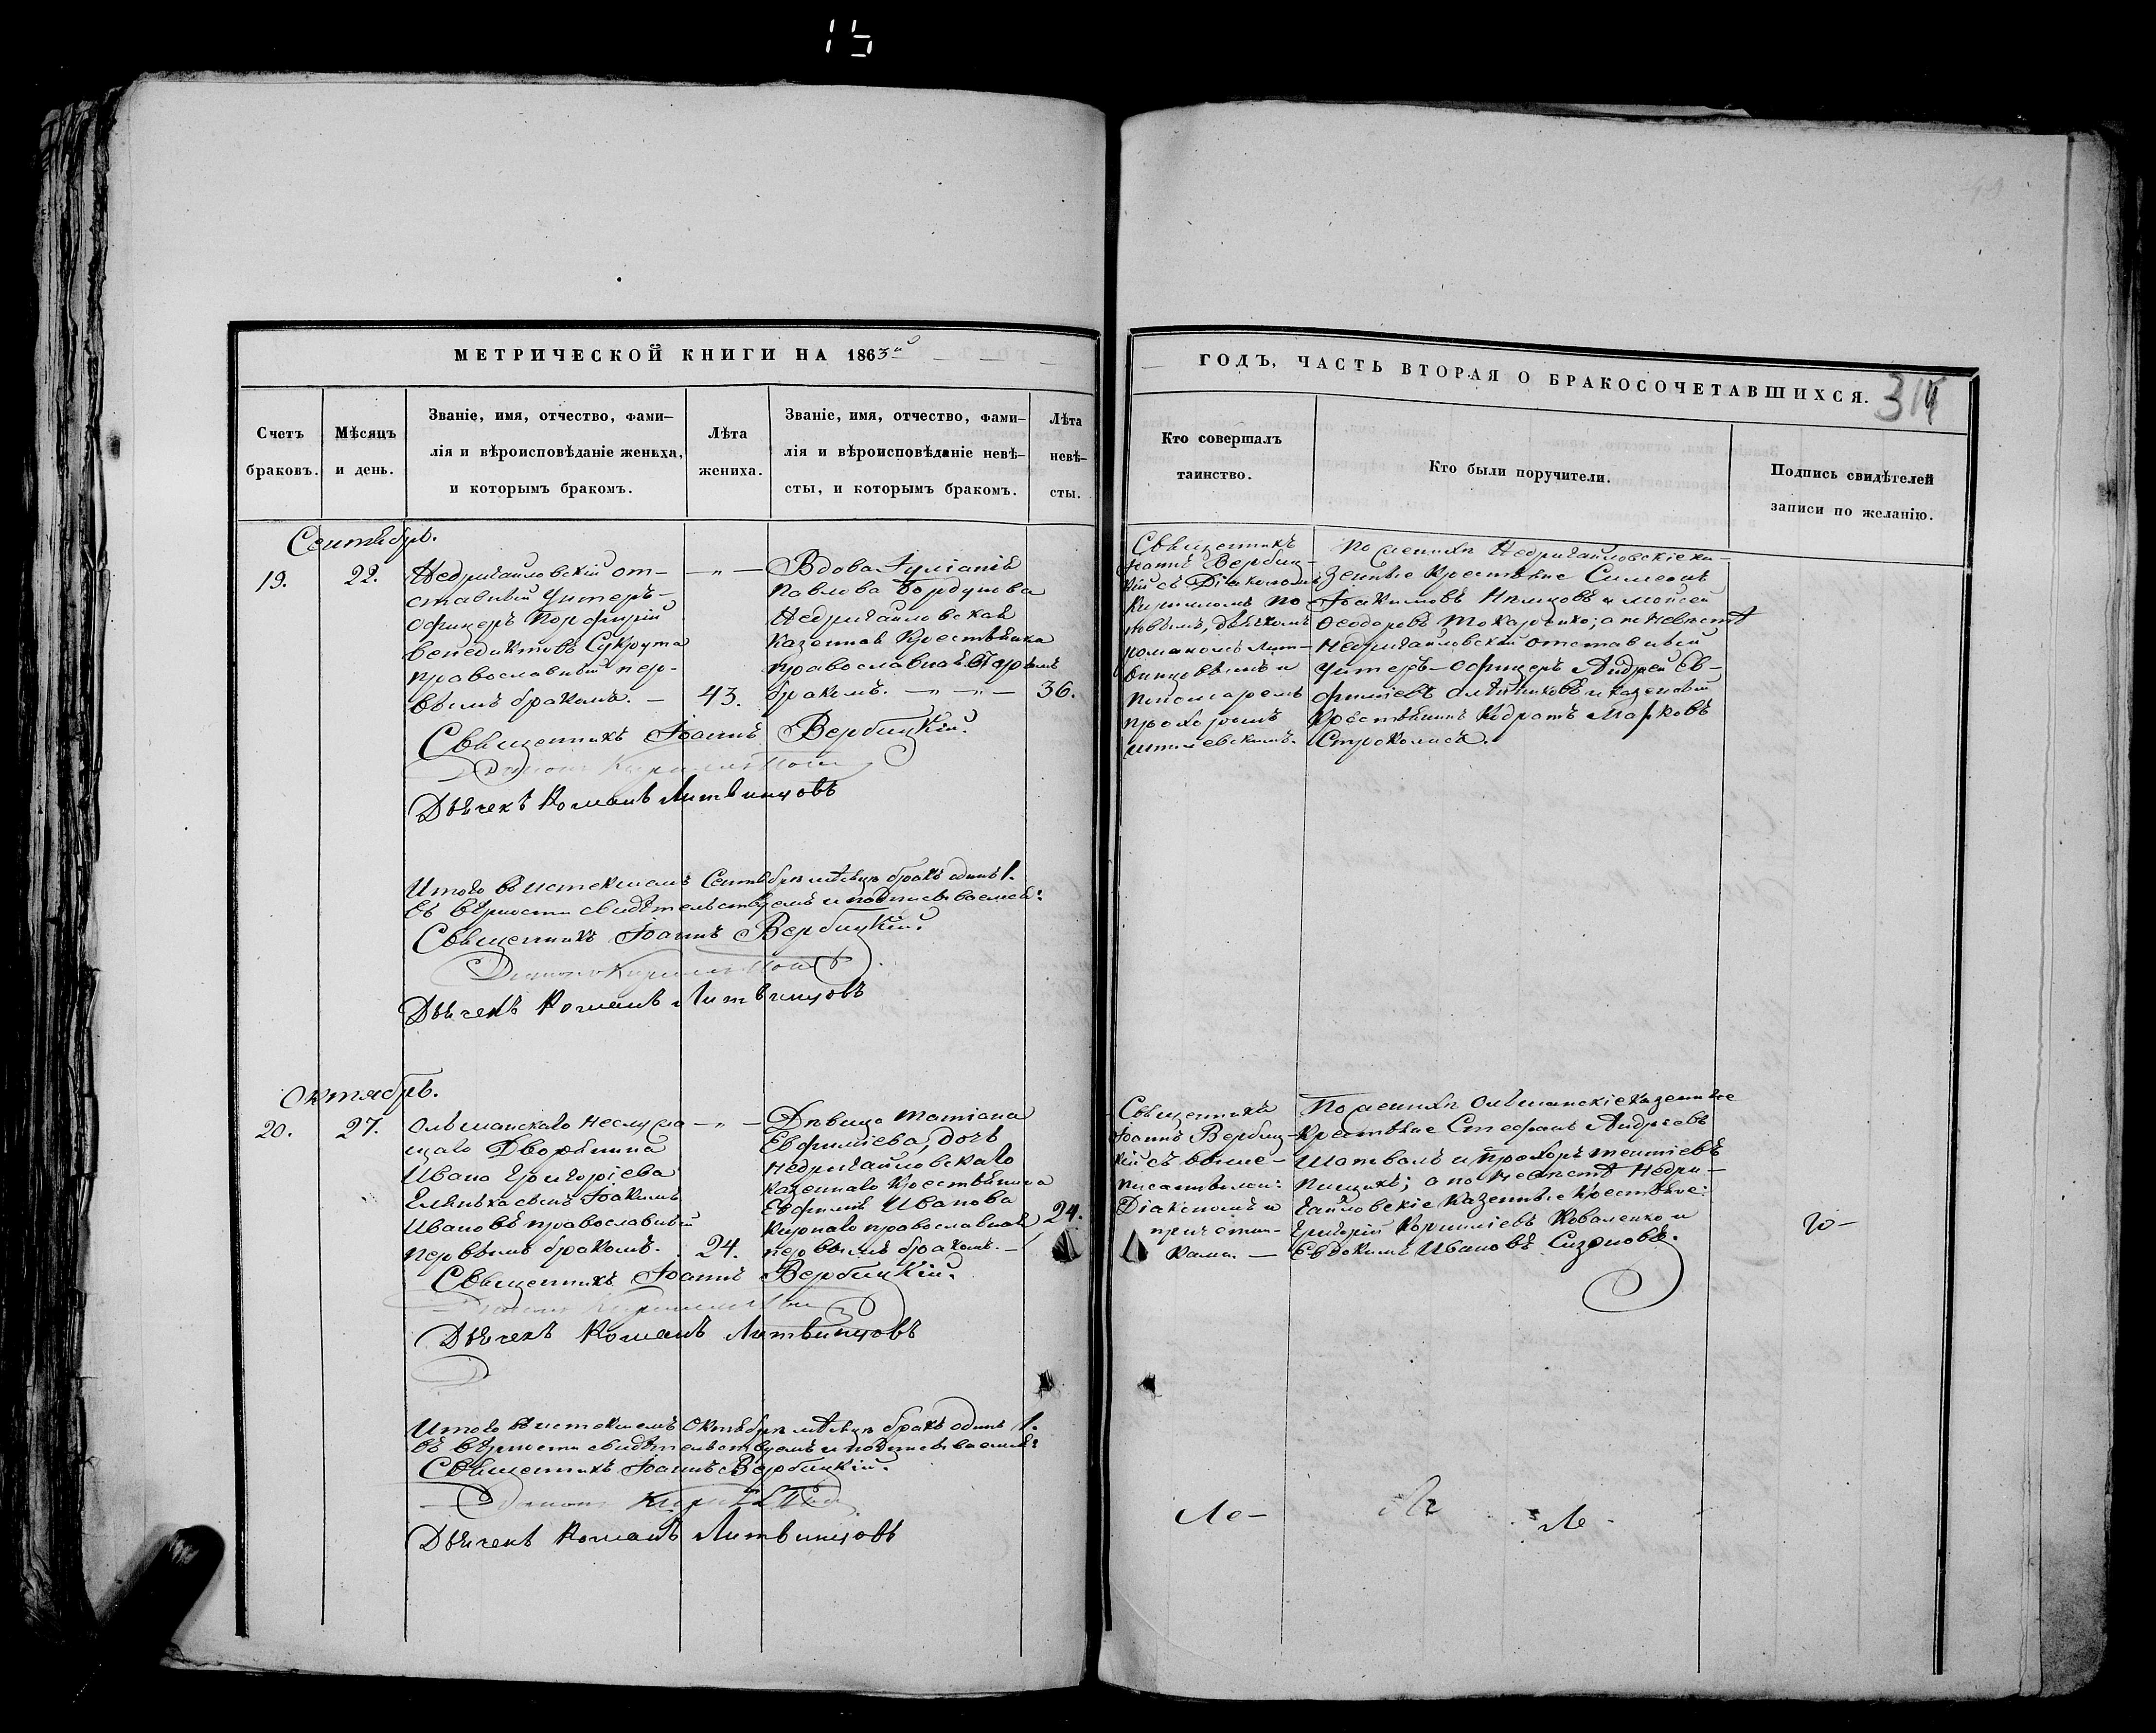 15
МЕТРИЧЕСКОЙ КНИГИ НА 1863й
Счетъ браковъ.
Мѣсяцъ и день.
Званіе, имя, отчество, фами-
лія и вѣроисповѣданіе жениха,
и которымъ бракомъ.
Лѣта жениха.
Званіе, имя, отчество, фами-
лія и вѣроисповѣданіе невѣ-
сты, и которымъ бракомъ.
Лѣта невѣ-
сты.
Сентябрь.
19.
22.
Недригайловскій от-
ставный Унтеръ-
офицеръ Порфирій
Венедиктовъ Сукрута
православный пер-
вымъ бракомъ. —
43.
Вдова Іуліанія
Павлова Бордунова
Недригайловская
казенная Крестьянка
православная вторымъ
бракомъ.
36.
Священникъ Іоаннъ Вербицкій.
Діаконъ Кириллъ
Дьячекъ Романъ Литвинцовъ
Итого въ истекшемъ Сентябрѣ мѣсяцѣ бракъ одинъ 1.
Въ вѣрности свидѣтельствуемъ и подписываемся:
Священникъ Іоаннъ Вербицкій.
Діаконъ Кириллъ
Дьячекъ Романъ Литвинцовъ
Октябрь.
20.
27.
Ольшанскаго неслужа-
щаго Дворянина
Ивана Григоріева
сынъ Іоакимъ
Ивановъ православный
первымъ бракомъ.
24.
Дѣвица Татіана
Евфиміева, дочь
Недригайловскаго
казеннаго Крестьянина
Евфимія Иванова
православная
первымъ бракомъ. —
24.
Священникъ Іоаннъ Вербицкій.
Діаконъ Кириллъ
Дьячекъ Романъ Литвинцовъ
Итого въ истекшемъ Октябрѣ мѣсяцѣ бракъ одинъ 1.
Въ вѣрности свидѣтельствуемъ и подписываемся:
Священникъ Іоаннъ Вербицкій.
Діаконъ Кириллъ
Дьячекъ Романъ Литвинцовъ
ГОДЪ, ЧАСТЬ ВТОРАЯ О БРАКОСОЧЕТАВШИХСЯ.
Кто совершалъ
таинство.
Кто были поручители.
Подпись свидѣтелей
записи по желанію.
Священникъ
Іоаннъ Вербиц-
кій съ Діакономъ
Кирилломъ По-
повымъ, дьячкомъ
Романомъ Лит-
винцовымъ и
пономаремъ
Прохоромъ
По женихѣ Недригайловскіе ка-
зенные Крестьяне Симеонъ
Іоакимовъ и Моисей
Феодоровъ Токаренко; а по невѣстѣ
Недригайловскій отставный
Унтеръ-офицеръ Андрей Ев-
фиміевъ и казенный
Крестьянинъ Кодратъ Марковъ
Священникъ
Іоаннъ Вербиц-
кій съ выше-
писаннымъ
Діакономъ и
причетни-
ками. —
По женихѣ Ольшанскіе казенные
Крестьяне Стефанъ Андреевъ
и Прохоръ
а по невѣстѣ Недри-
гайловскіе казенные Крестьяне:
Григорій Корниліевъ Коваленко и
Евдокимъ Ивановъ Сизоновъ.